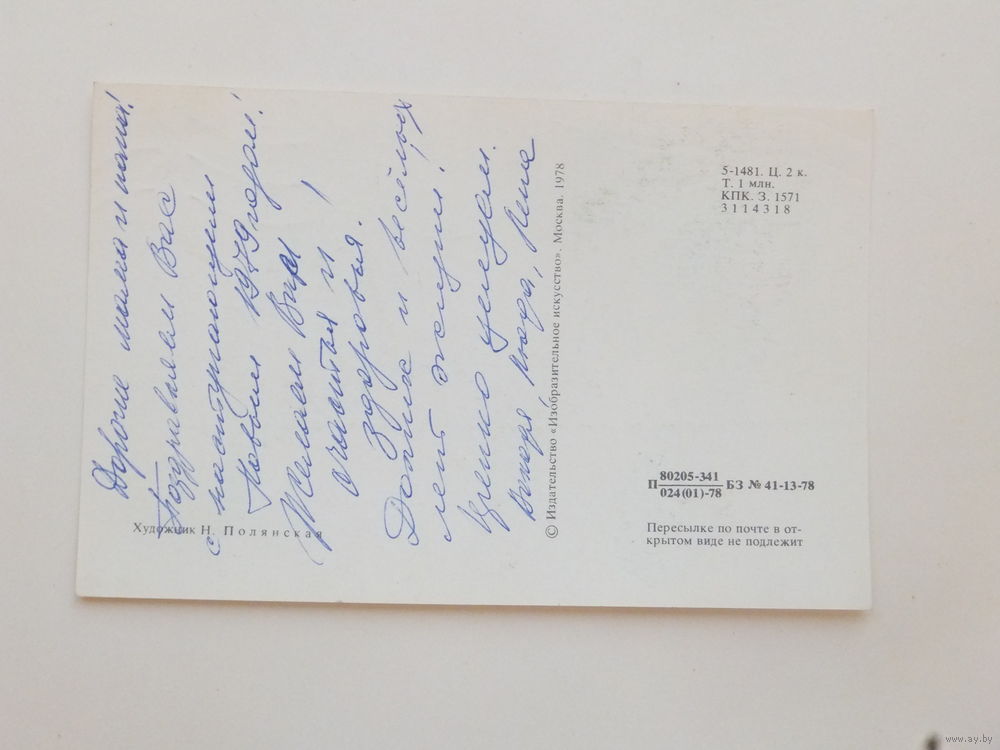 Дорогие мама и папа!
Поздравляем Вас
с наступающим
Новым 1979 годом!
Желаем Вам
счастья и
здоровья!
Долгих и весёлых
лет жизни!
Крепко целуем.
Люда, Лена
Художник Н. Полянская
© Издательство «Изобразительное искусство». Москва. 1978
5-1481. Ц. 2 к.
Т. 1 млн.
КПК. З. 1571
3114318
П 80205-341 БЗ № 41-13-78
024(01)-78
Пересылке по почте в от-
крытом виде не подлежит
www.ay.by